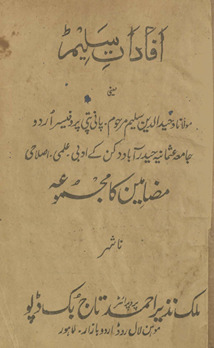 افاداتِ سلیم
یعنی
مولانا وحید الدین سلیم مرحوم۔ پانی پتی پروفیسر اردو
جامعہ عثمانیہ حیدرآباد دکن کے ادبی۔ علمی۔ اصلاحی
مضامین کا مجموعہ
ناشر
ملک نذیر احمد پروپرائٹر تاج بک ڈپو
موہن لال روڈ اردو بازار۔ لاہور